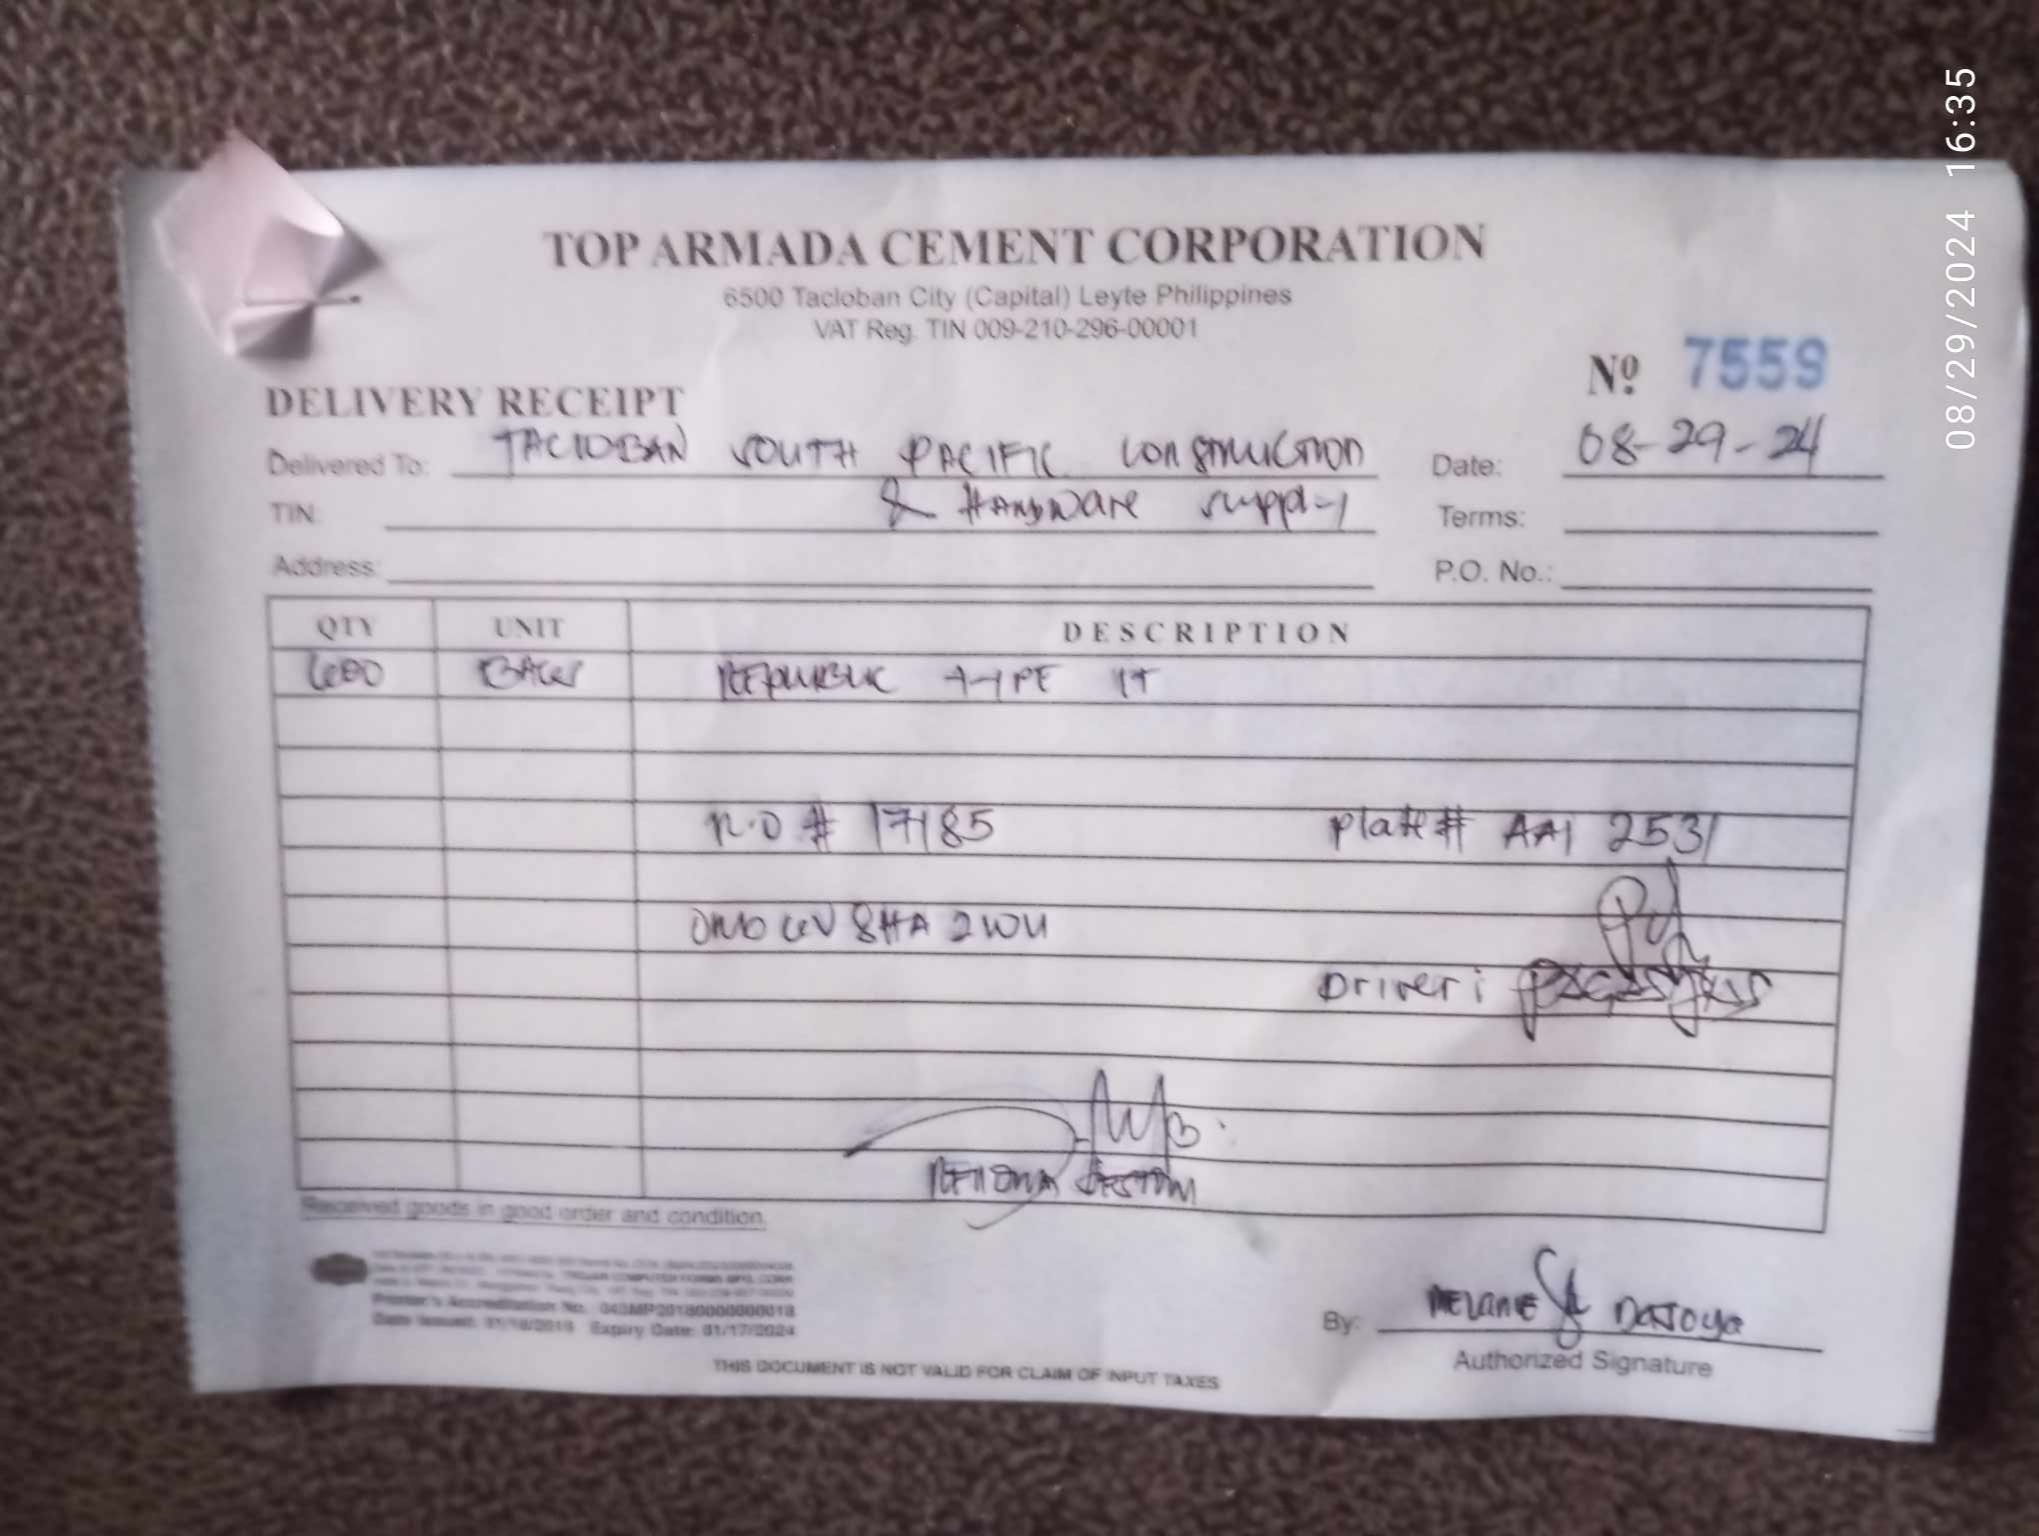 08/29/2024 16:35
TOP ARMADA CEMENT CORPORATION
6500 Tacloban City (Capital) Leyte Philippines
VAT Reg. TIN 009-210-296-00001
Nº 7559
DELIVERY RECEIPT
Delivered To: TACLOBAN SOUTH PACIFIC CONSTRUCTION
Date: 08-29-24
TIN: & HARDWARE SUPPLY
Terms:
Address:
P.O. No.:
QTY UNIT DESCRIPTION
600 BAGS REPUBLIC TYPE 1T
# 17185 Plate# AAI 2531
Driver:
Received goods in good order and condition.
Printer's Accreditation No. 043MP20180000000018
Expiry Date: 01/17/2024
By: MELANIE DATOYA
Authorized Signature
THIS DOCUMENT IS NOT VALID FOR CLAIM OF INPUT TAXES